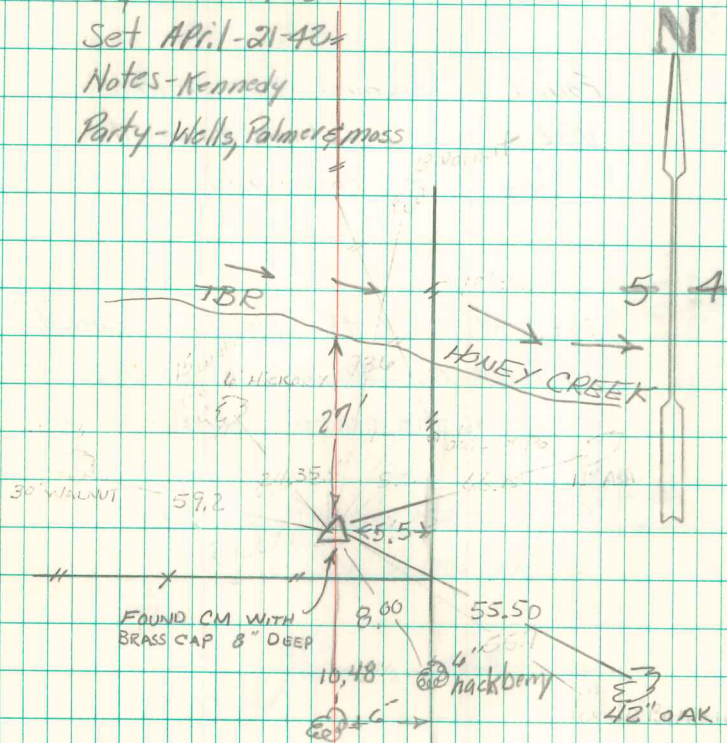 Set April-21-42
Notes-Kennedy
Party-Wells, Palmer & moss
N
5 4
TBR
HONEY CREEK
6" HICKORY
73.6
27'
35
30" WALNUT
59.2
5.5
FOUND CM WITH
BRASS CAP 8" DEEP
8.00
55.50
10.48'
6"
hackberry
6"
42" OAK